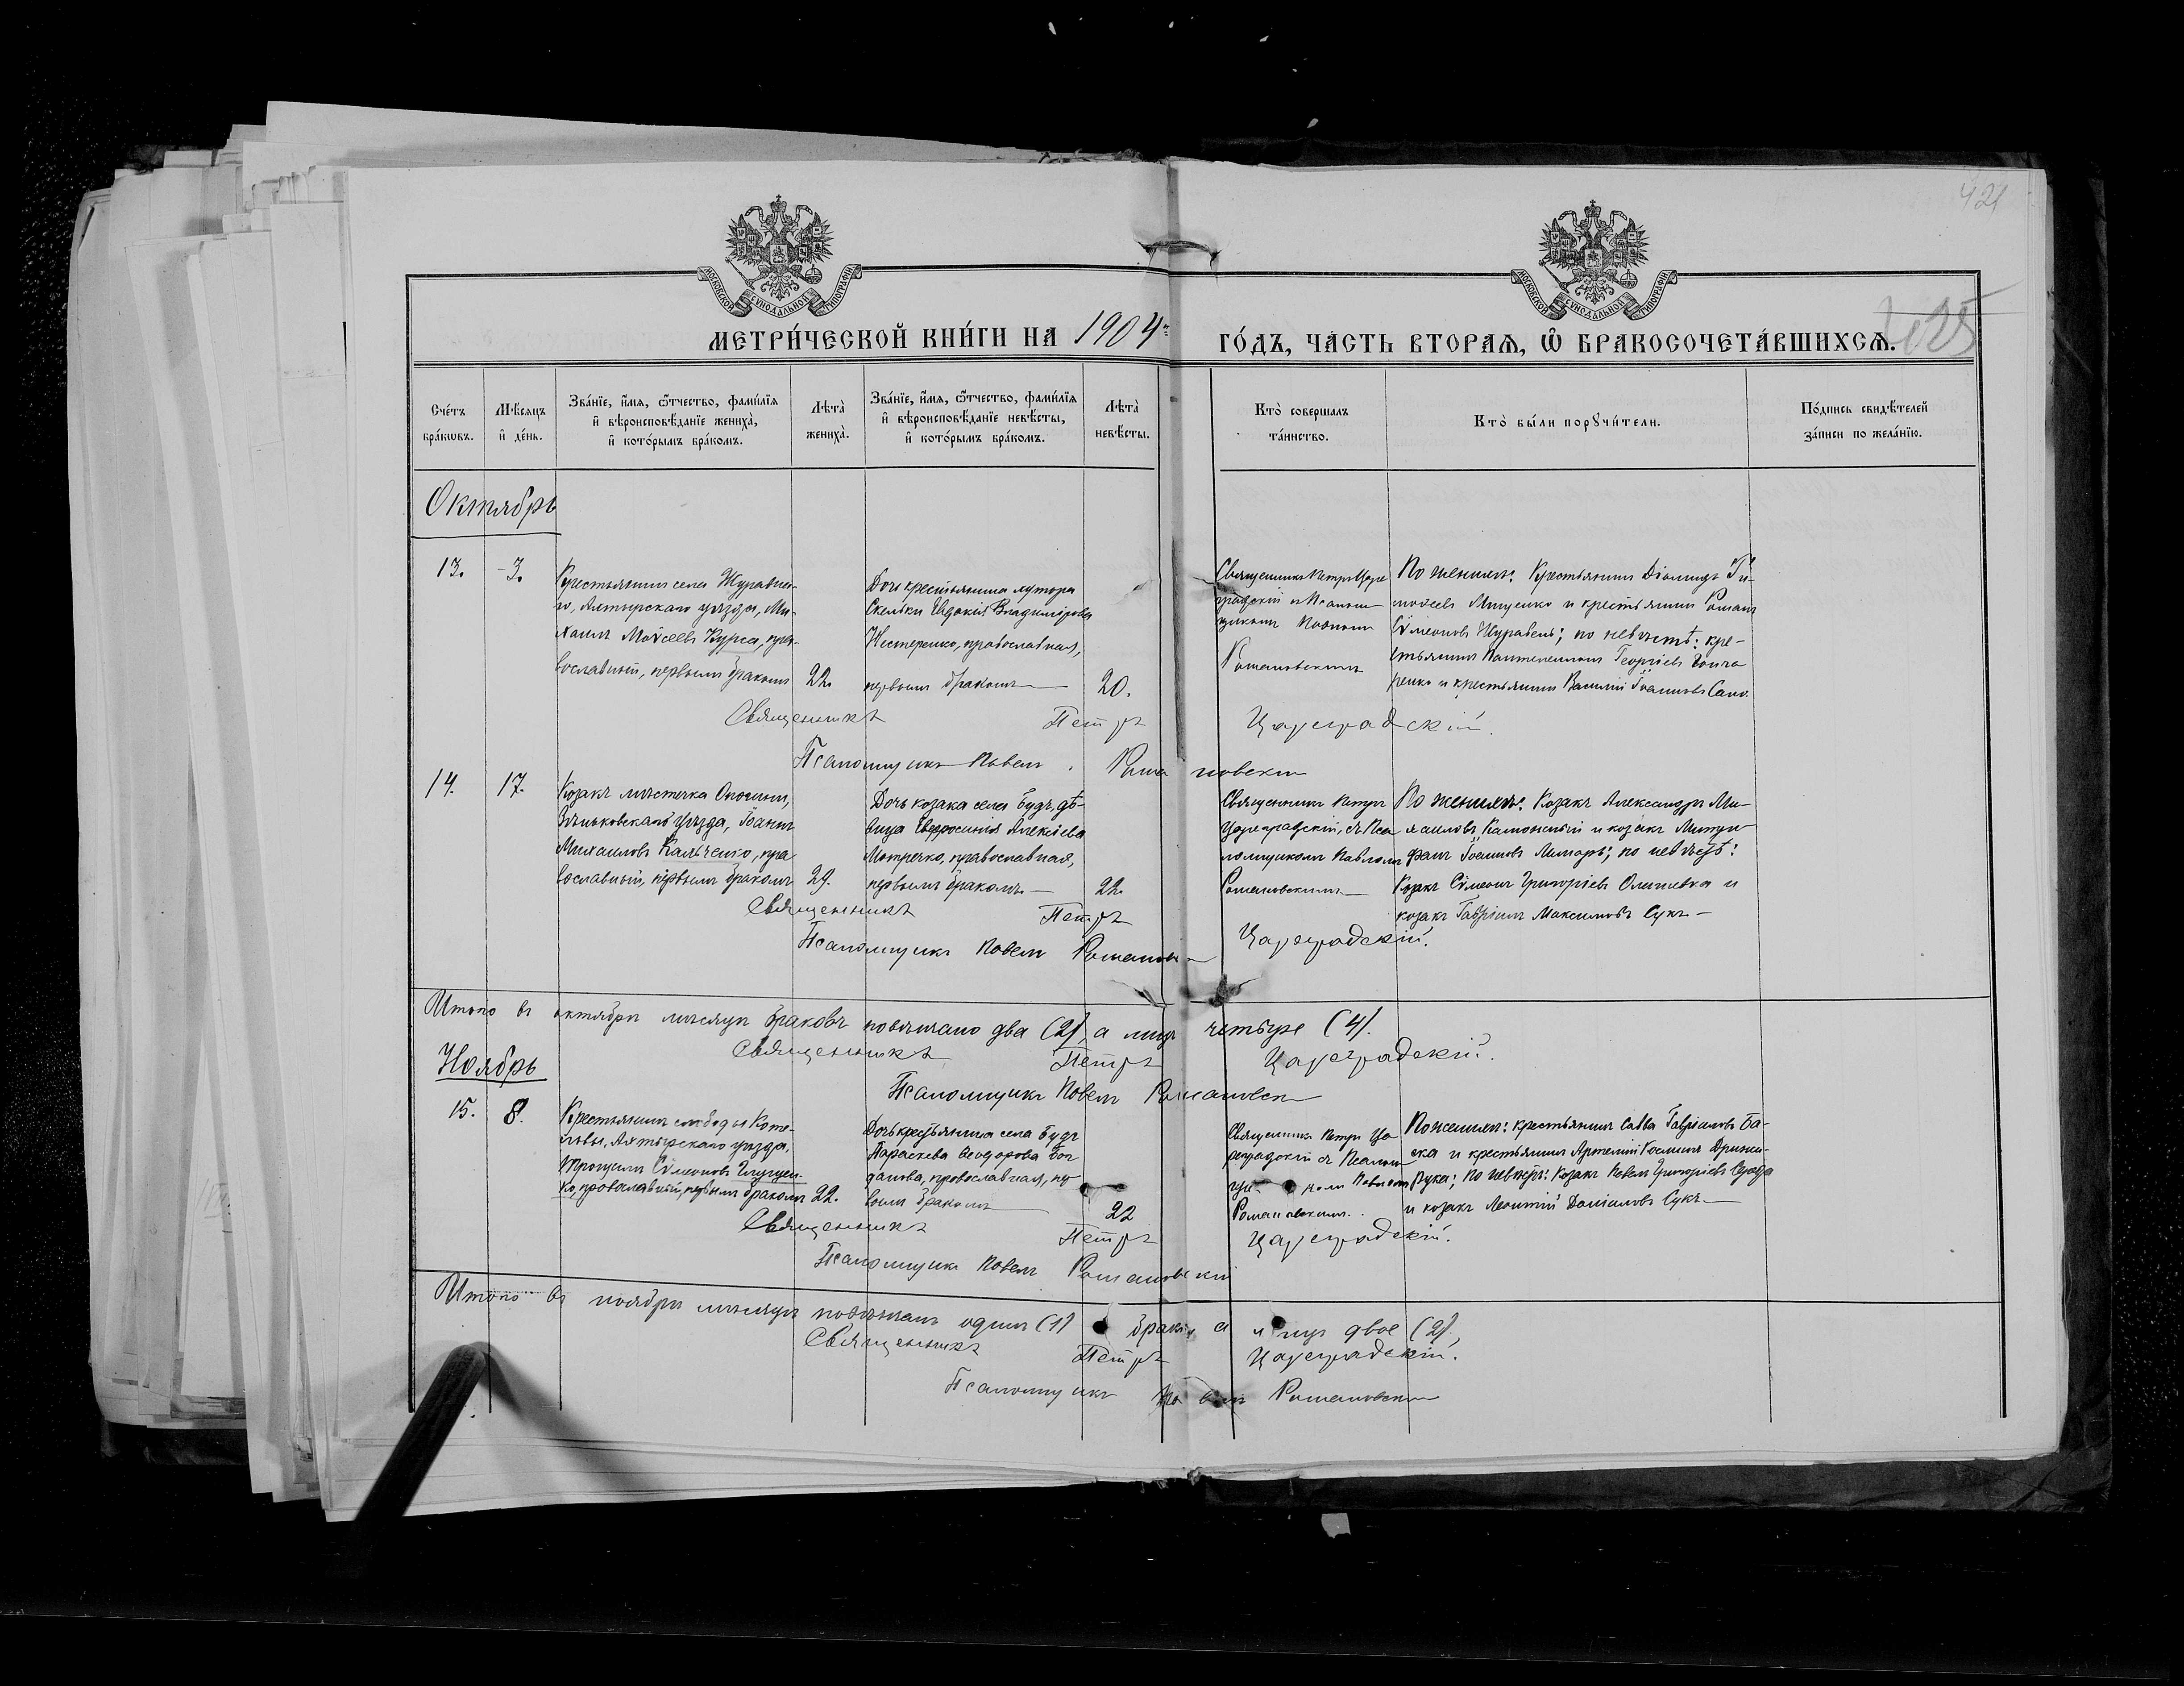 421
МОСКОВСКОЙ СѴНОДАЛЬНОЙ ТИПОГРАФІИ
МОСКОВСКОЙ СѴНОДАЛЬНОЙ ТИПОГРАФІИ
МЕТРИ́ЧЕСКОЙ КНИ́ГИ НА 1904 ГО́ДЪ, ЧА́СТЬ ВТОРАѦ, Ѿ БРАКОСОЧЕТА́ВШИХСѦ.
Сче́тъ
бра́кѡвъ.
Мѣ́сѧцъ
и҆ де́нь.
Зва́нїе, и҆́мѧ, ѻ҆́тчество, фамі́лїѧ
и҆ вѣроисповѣ́данїе жениха̀,
и҆ кото́рымъ бра́комъ.
Лѣта̀
жениха̀.
Зва́нїе, и҆́мѧ, ѻ҆́тчество, фамі́лїѧ
и҆ вѣроисповѣ́данїе невѣ́сты,
и҆ кото́рымъ бра́комъ.
Лѣта̀
невѣ́сты.
Кто̀ соверша́лъ
та́инство.
Кто̀ бы́ли порꙋчи́тели.
По́дпись свидѣ́телей
за́писи по жела́нїю.
Октябрь
13.
3.
Крестьянинъ села Журавна-
го, Ахтырскаго уѣзда, Ми-
хаилъ Моѵсеевъ Курса, пра-
вославный, первымъ бракомъ
22.
Дочь крестьянина хутора
Скельки Евдокія Владимірова
Нестеренко, православная,
первымъ бракомъ
20.
Священникъ Петръ Царе
градскій съ Псалом
щикомъ Павломъ
Романовскимъ
По женихѣ: Крестьянинъ Діомидъ Ти-
моѳеевъ Мищенко и крестьянинъ Романъ
Сѵмеоновъ Журавель; по невѣстѣ: кре-
стьянинъ Пантелеимонъ Георгіевъ Гонча
ренко и крестьянинъ Василій Іоанновъ
Священникъ Петръ Цареградскій.
Псаломщикъ Павелъ Романовскій
14.
17.
Козакъ мѣстечка Опошни,
Зѣньковскаго уѣзда, Іоаннъ
Михаиловъ Кальченко, пра
вославный, первымъ бракомъ
24.
Дочь козака села Будъ, дѣ-
вица Евфросинія Алексіева
Мотречко, православная,
первымъ бракомъ
22.
Священникъ Петръ
Цареградскій, съ Пса
ломщикомъ Павломъ
Романовскимъ
По женихѣ: Козакъ Александръ Ми-
хаиловъ Калюжный и козакъ Митро-
фанъ Іоанновъ Лимарь; по невѣстѣ:
Козакъ Сѵмеонъ Григоріевъ и
козакъ Гавріилъ Максимовъ Сукъ
Священникъ Петръ Цареградскій.
Псаломщикъ Павелъ Романовскій
Итого въ октябрѣ мѣсяцѣ браковъ повѣнчано два (2), а лицъ четыре (4).
Священникъ Петръ Цареградскій.
Псаломщикъ Павелъ Романовскій
Ноябрь
15.
8.
Крестьянинъ слободы Коте-
львы, Ахтырскаго уѣзда,
Трофимъ Сѵмеоновъ Глущен-
ко, православный, первымъ бракомъ
22.
Дочь крестьянина села Будъ
Параскева Ѳеодорова Бог
данова, православная, пер
вымъ бракомъ
22
Священникъ Петръ Ца
реградскій съ Псалом
щикомъ Павломъ
Романовскимъ.
По женихѣ: крестьянинъ Савва Гавріиловъ
и крестьянинъ Артемій Косминъ
по невѣстѣ: Козакъ Павелъ Григоріевъ Середа
и козакъ Леонтій Даніиловъ Сукъ
Священникъ Петръ Цареградскій.
Псаломщикъ Павелъ Романовскій
Итого въ ноябрѣ мѣсяцѣ повѣнчанъ одинъ (1) бракъ, а лицъ двое (2),
Священникъ Петръ Цареградскій.
Псаломщикъ Павелъ Романовскій